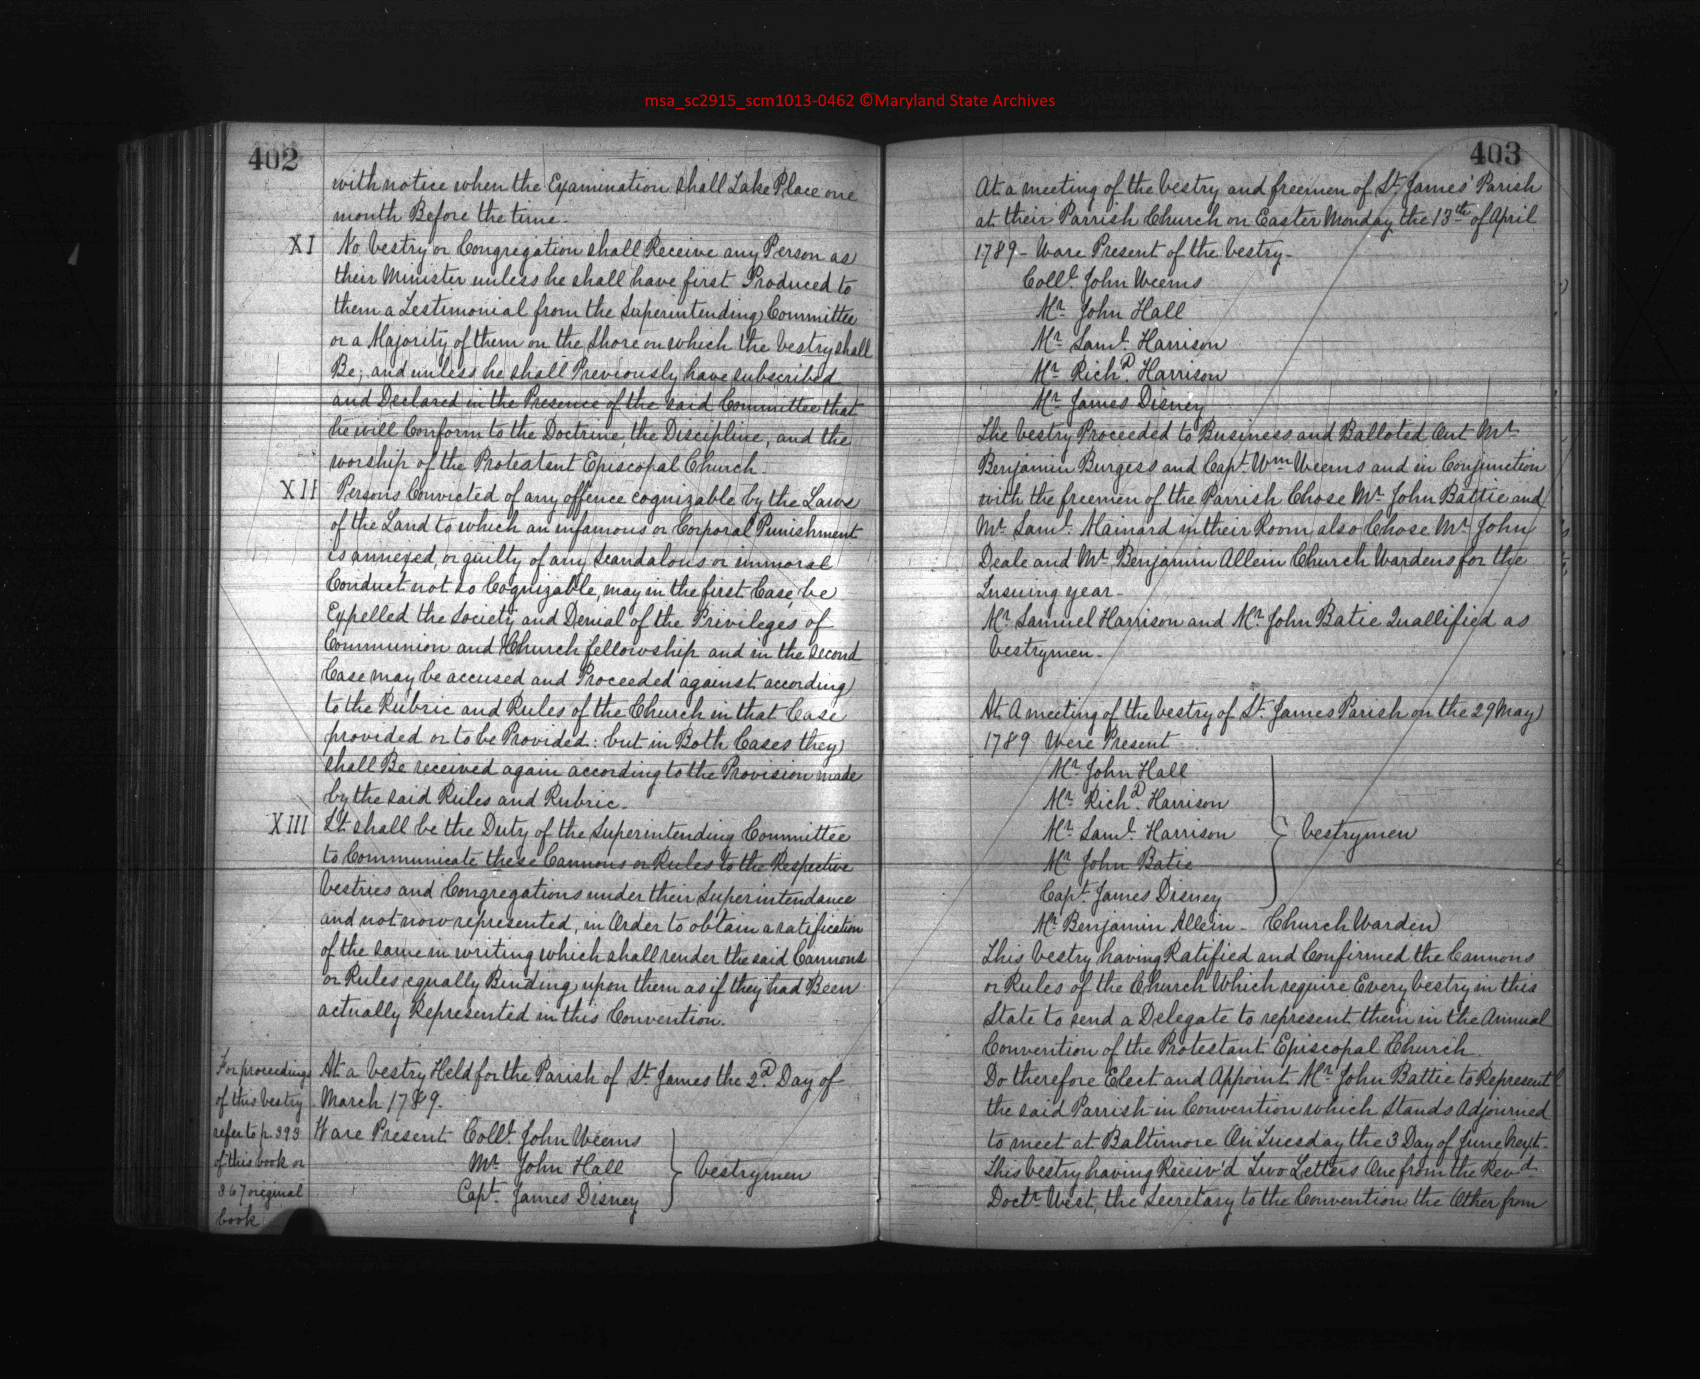 msa_sc2915_scm1013-0462 ©Maryland State Archives
402
with notice when the Examination shall Take Place one
month Before the time.
XI No Vestry or Congregation shall Receive any Person as
their Minister unless he shall have first Produced to
them a Testimonial from the Superintending Committee
or a Majority of them on the Shore on which the Vestry shall
Be; and unless he shall Previously have subscribed
and Declared in the Presence of the said Committee that
he will Conform to the Doctrine, the Discipline, and the
worship of the Protestant Episcopal Church.
XII Persons Convicted of any offence cognizable by the Laws
of the Land to which an infamous or Corporal Punishment
is annexed, or guilty of any Scandalous or immoral
Conduct not so Cognizable, may in the first Case, be
Expelled the Society and Denial of the Privileges of
Communion and Church fellowship and in the second
Case may be accused and Proceeded against according
to the Rubric and Rules of the Church in that Case
provided or to be Provided: but in Both Cases they
shall Be received again according to the Provision made
by the said Rules and Rubric.
XIII It shall be the Duty of the Superintending Committee
to Communicate these Cannons or Rules to the Respective
Vestries and Congregations under their Superintendance
and not now represented, in Order to obtain a ratification
of the same in writing which shall render the said Cannons
or Rules equally Binding upon them as if they had Been
actually Represented in this Convention.
For proceedings
of this vestry
refer to p. 393
of this book or
367 original
book
At a Vestry Held for the Parish of St. James the 2d Day of
March 1789.
Ware Present Colll. John Weems
Mr. John Hall
Capt. James Disney
Vestrymen
403
At a meeting of the Vestry and freemen of St. James' Parish
at their Parrish Church on Easter Monday the 13th of April
1789 - Ware Present of the Vestry -
Colll. John Weems
Mr. John Hall
Mr. Saml. Harrison
Mr. Richd. Harrison
Mr. James Disney
The Vestry Proceeded to Business and Balloted Out Mr.
Benjamin Burgess and Capt. Wm Weems and in Conjunction
with the freemen of the Parrish Chose Mr. John Battie and
Mr. Saml. Mainard in their Room also Chose Mr. John
Deale and Mr. Benjamin Allein Church Wardens for the
Insuing year -
Mr. Samuel Harrison and Mr. John Batie Quallified as
Vestrymen.
At A meeting of the Vestry of St. James Parish on the 29 May
1789 Were Present
Mr. John Hall
Mr. Richd. Harrison
Mr. Saml. Harrison
Mr. John Batie
Capt. James Disney
Vestrymen
Mr. Benjamin Allein - Church Warden
This Vestry having Ratified and Confirmed the Cannons
or Rules of the Church Which require Every Vestry in this
State to send a Delegate to represent them in the Annual
Convention of the Protestant Episcopal Church.
Do therefore Elect and Appoint Mr. John Battie to Represent
the said Parrish in Convention which Stands Adjourned
to meet at Baltimore On Tuesday the 3 Day of June Next.
This Vestry having Receiv'd Two Letters One from the Revd.
Doctr. West, the Secretary to the Convention the Other from